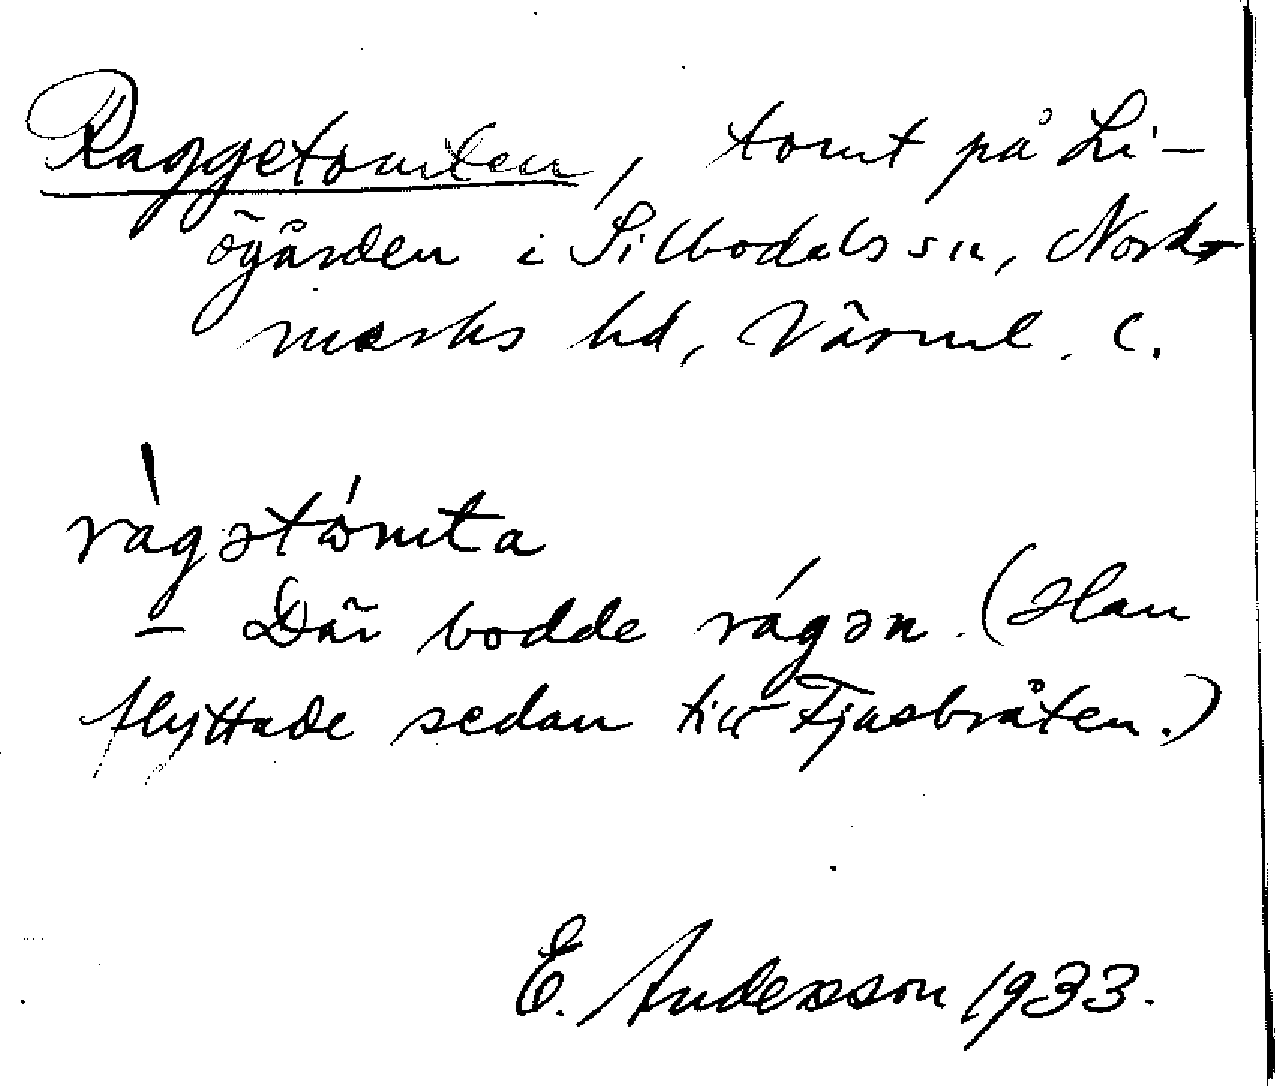 Raggetomten, tomt på Li-
ögården i Silbodals sn, Nord-
marks hd, Värml. l.
ràgətómta
– Där bodde rágən. (Han
flyttade sedan till Fjusbråten.)
E. Andersson 1933.